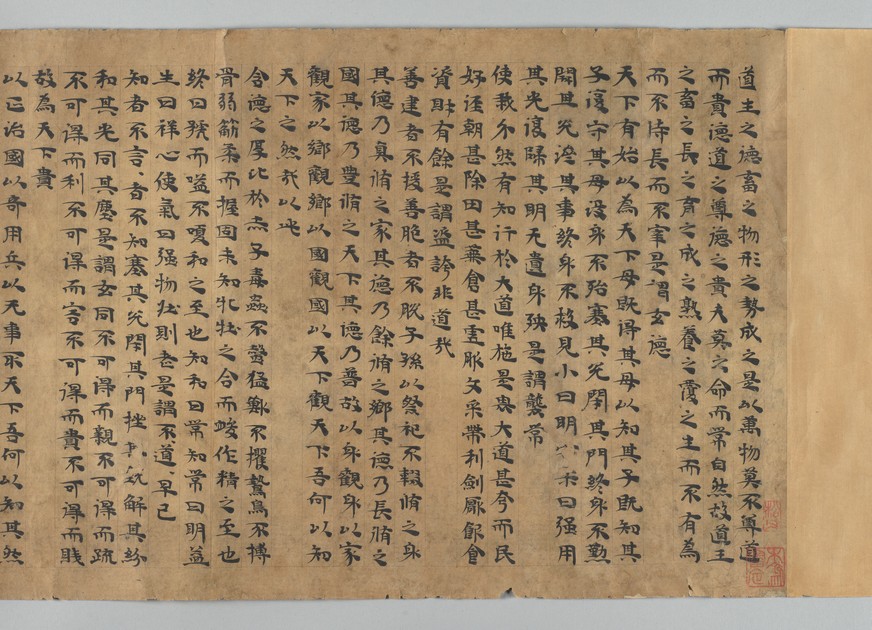 道生之德畜之物形之勢成之是以萬物莫不尊道
而貴德道之尊德之貴夫莫之命而常自然故道生
之畜之長之育之成之熟養之覆之生而不有為
而不恃長而不宰是謂玄德
天下有始以為天下母既得其母以知其子既知其
子復守其母没身不殆塞其兌閉其門終身不勤
開其兌濟其事終身不救見小曰明柔曰强用
其光復歸其明无遺身殃是謂襲常
使我介然有知行於大道唯施是畏大道甚夸而民
好徑朝甚除田甚蕪倉甚虛服文采帶利劍厭飲食
資財有餘是謂盜誇非道哉
善建者不拔善抱者不脫子孫以祭祀不輟脩之身
其德乃真脩之家其德乃餘脩之鄉其德乃長脩之
國其德乃豐脩之天下其德乃普故以身觀身以家
觀家以鄉觀鄉以國觀國以天下觀天下吾何以知
天下之然哉以此
含德之厚比於赤子毒蟲不螫猛獸不攫鷙鳥不搏
骨弱筋柔而握固未知牝牡之合而峻作精之至也
終日號而嗌不嗄和之至也知和曰常知常曰明益
生曰祥心使氣曰强物壯則老是謂不道、早已
知者不言、者不知塞其兌閉其門挫其銳解其紛
和其光同其塵是謂玄同不可得而親不可得而疏
不可得而利不可得而害不可得而貴不可得而賤
故為天下貴
以正治國以奇用兵以无事取天下吾何以知其然